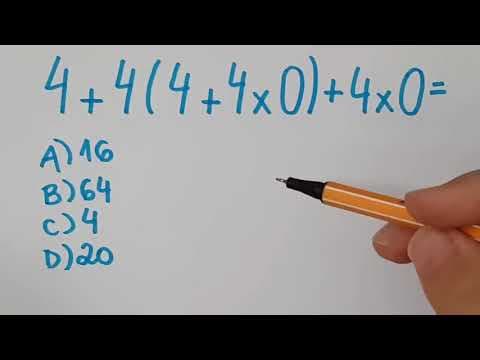 4+4(4+4×0)+4×0=
A) 16
B) 64
C) 4
D) 20